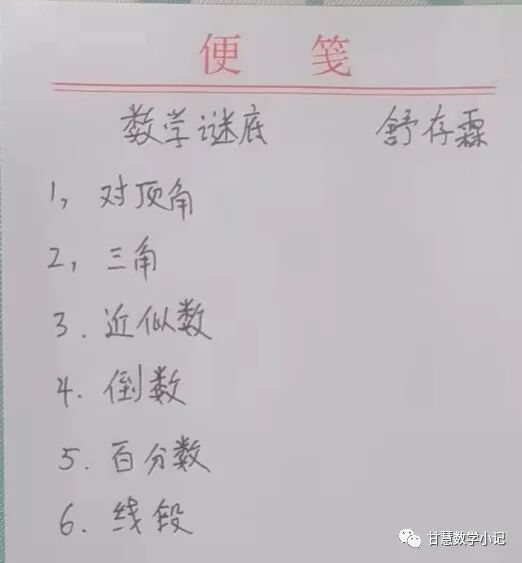 便 笺
数学谜底 舒存霖
1, 对顶角
2, 三角
3. 近似数
4. 倒数
5. 百分数
6. 线段
甘慧数学小记